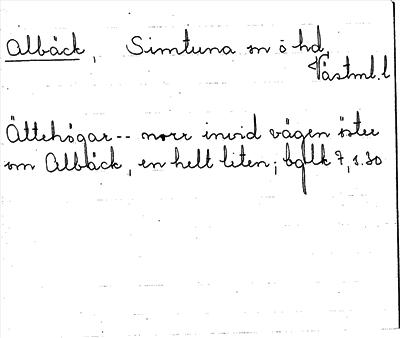 Albäck, Simtuna sn ö hd
Västml. l
Ättehögar -- norr invid vägen öster
om Albäck, en helt liten; bglk 7, s. 30